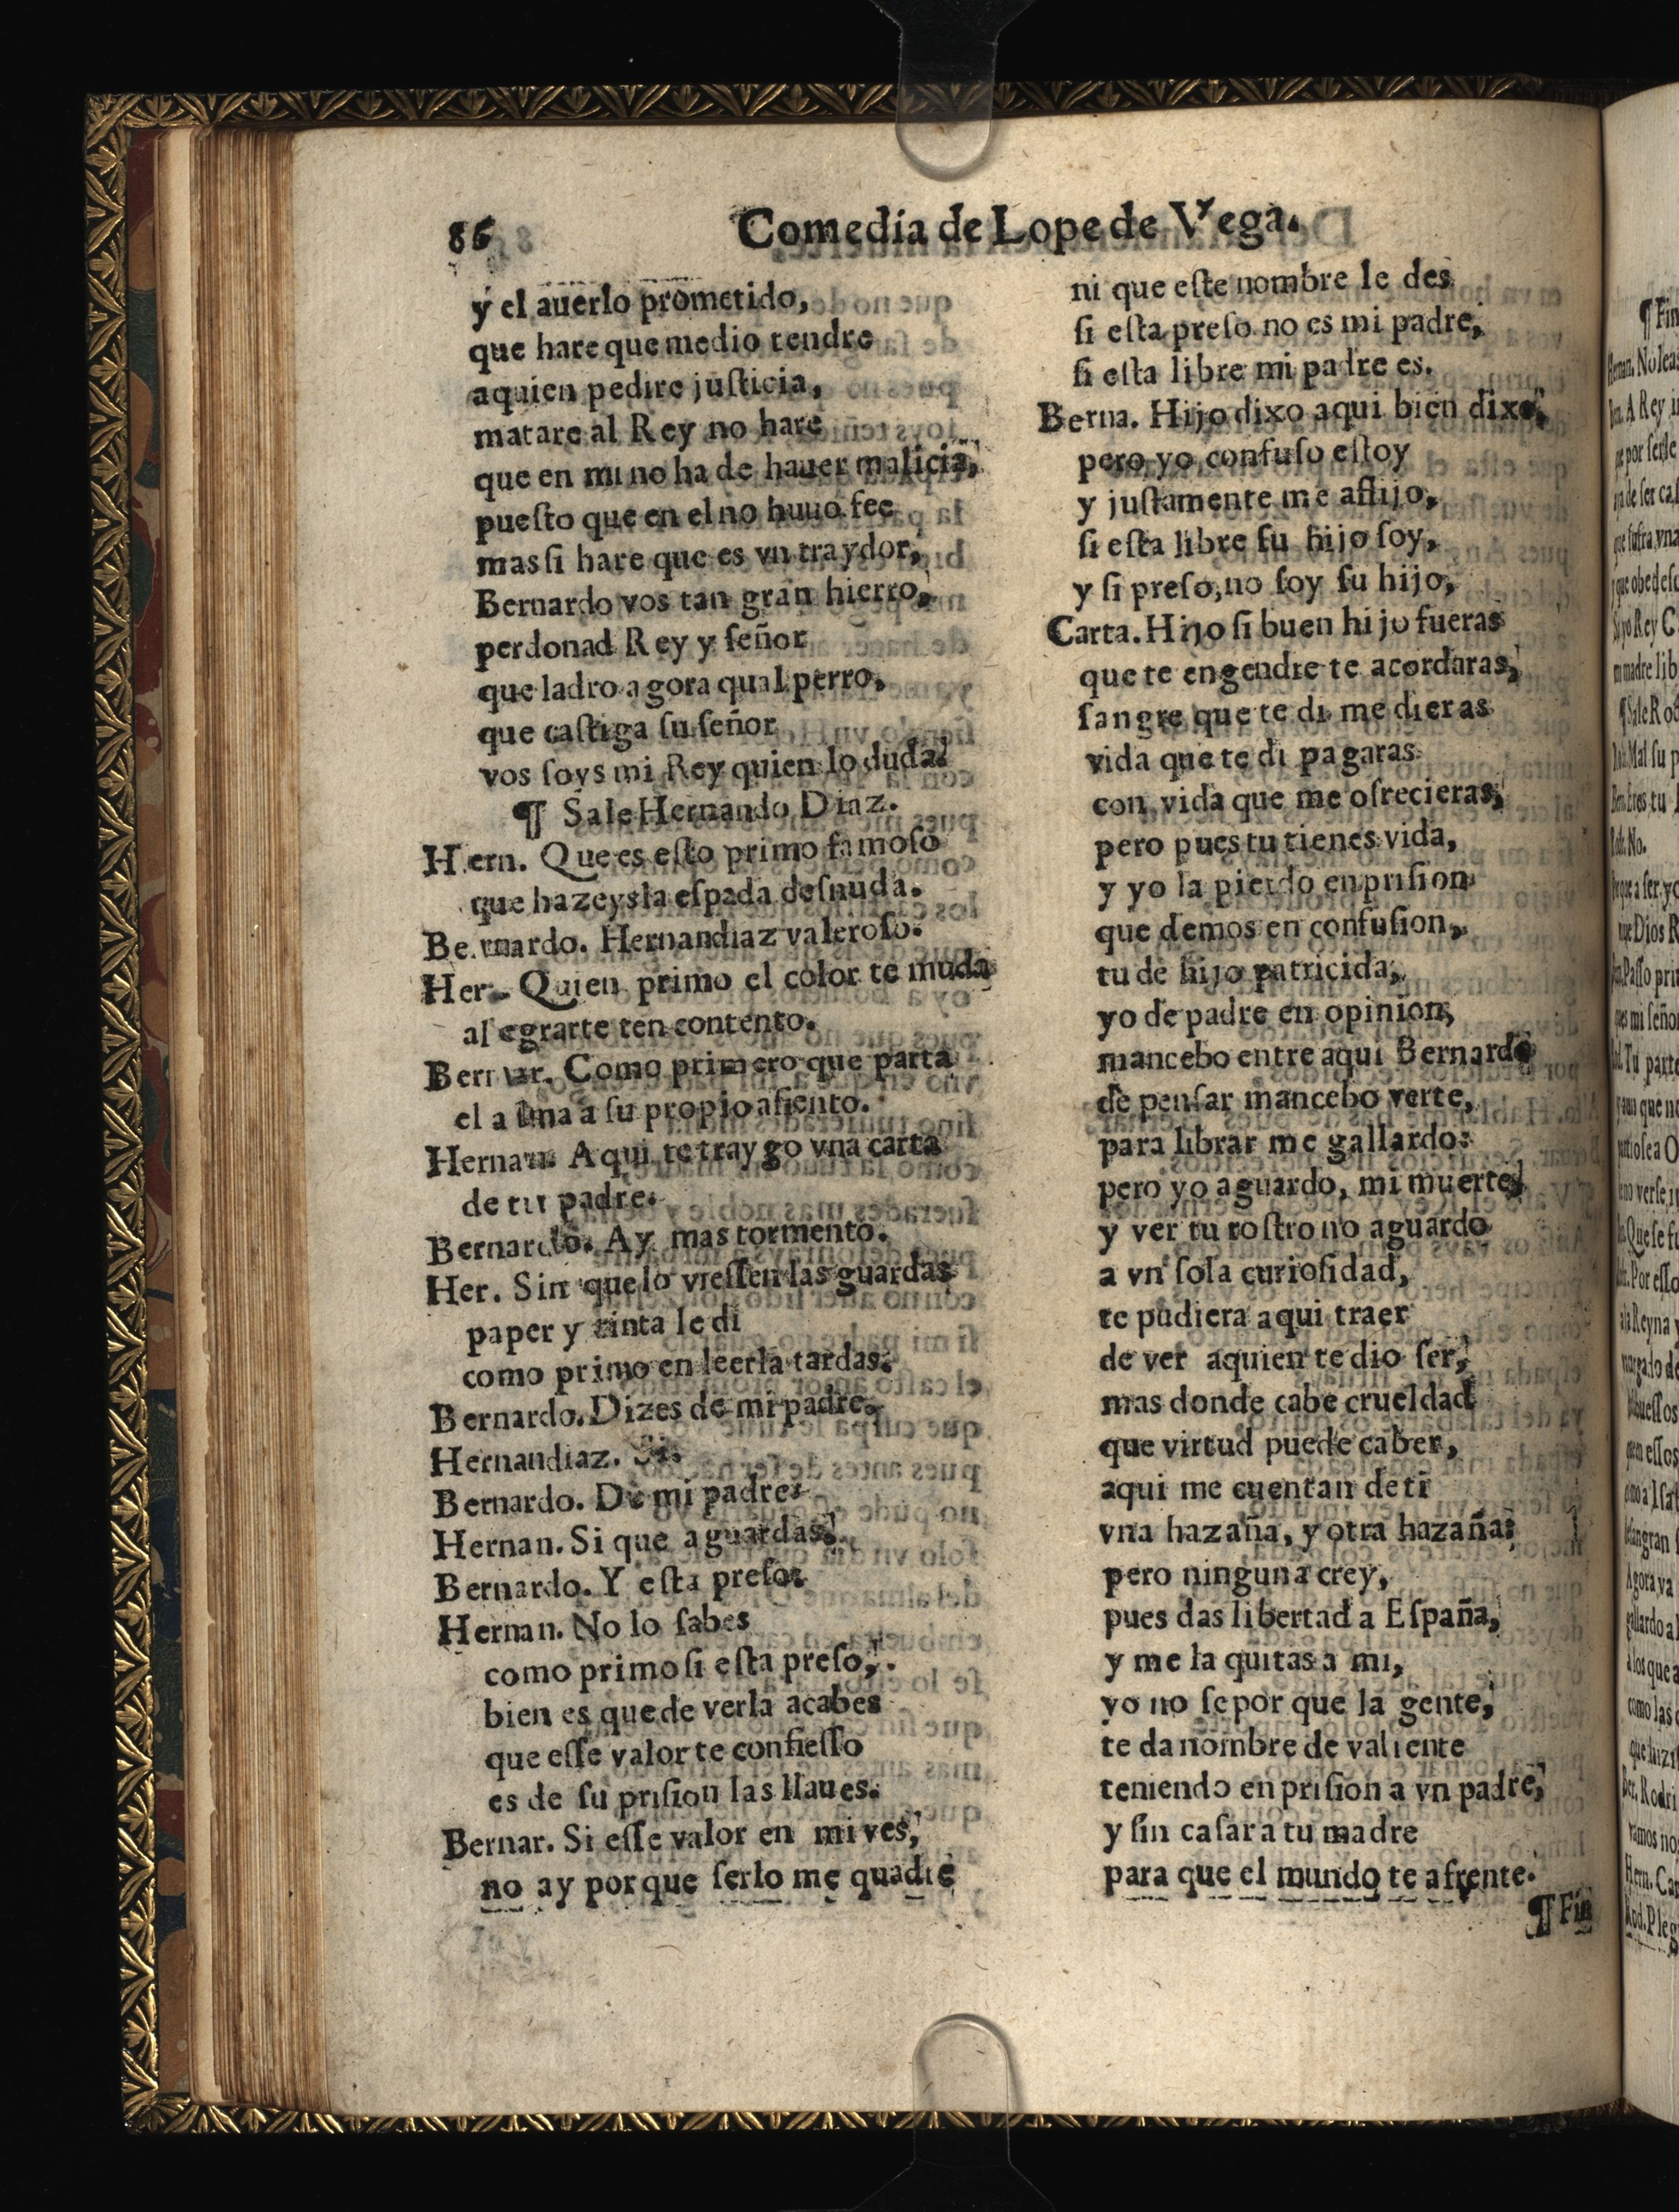 86
Comedia de Lope de Vega.
y el auerlo prometido,
que hare que medio tendre
aquien pedire juſticia,
matare al Rey no hare
que en mi no ha de hauer malicia,
pueſto que en el no huuo fee
mas ſi hare que es vn traydor,
Bernardo vos tan gran hierro,
perdonad Rey y ſeñor
que ladro agora qual perro,
que caſtiga ſu ſeñor
vos ſoys mi Rey quien lo duda?
¶ Sale Hernando Diaz.
Hern. Que es eſto primo famoſo
que hazeys la eſpada deſnuda.
Bernardo. Hernandiaz valeroſo.
Her. Quien primo el color te muda
alegrarte ten contento.
Bernar. Como primero que parta
el alma a ſu propio aſiento.
Hernan. Aqui te traygo vna carta
de tu padre.
Bernardo. Ay mas tormento.
Her. Sin que lo vieſſen las guardas
paper y tinta le di
como primo en leerla tardas.
Bernardo. Dizes de mi padre,
Hernandiaz. Si.
Bernardo. De mi padre?
Hernan. Si que aguardas?
Bernardo. Y eſta preſo?
Hernan. No lo ſabes
como primo ſi eſta preſo,
bien es que de verla acabes
que eſſe valor te confieſſo
es de ſu priſion las llaues.
Bernar. Si eſſe valor en mi ves,
no ay porque ſerlo me quadre
ni que eſte nombre le des
ſi eſta preſo no es mi padre,
ſi eſta libre mi padre es.
Berna. Hijo dixo aqui bien dixo,
pero yo confuſo eſtoy
y juſtamente me aflijo,
ſi eſta libre ſu hijo ſoy,
y ſi preſo, no ſoy ſu hijo,
Carta. Hijo ſi buen hijo fueras
que te engendre te acordaras,
ſangre que te di me dieras
vida que te di pagaras
con vida que me ofrecieras,
pero pues tu tienes vida,
y yo la pierdo en priſion
que demos en confuſion,
tu de hijo patricida,
yo de padre en opinion,
mancebo entre aqui Bernardo
de penſar mancebo verte,
para librar me gallardo:
pero yo aguardo, mi muerte,
y ver tu roſtro no aguardo
a vn ſola curioſidad,
te pudiera aqui traer
de ver aquien te dio ſer,
mas donde cabe crueldad
que virtud puede caber,
aqui me cuentan de ti
vna hazaña, y otra hazaña;
pero ninguna crey,
pues das libertad a Eſpaña,
y me la quitas a mi,
yo no ſe por que la gente,
te da nombre de valiente
teniendo en priſion a vn padre,
y ſin caſar a tu madre
para que el mundo te afrente.
¶ Fin